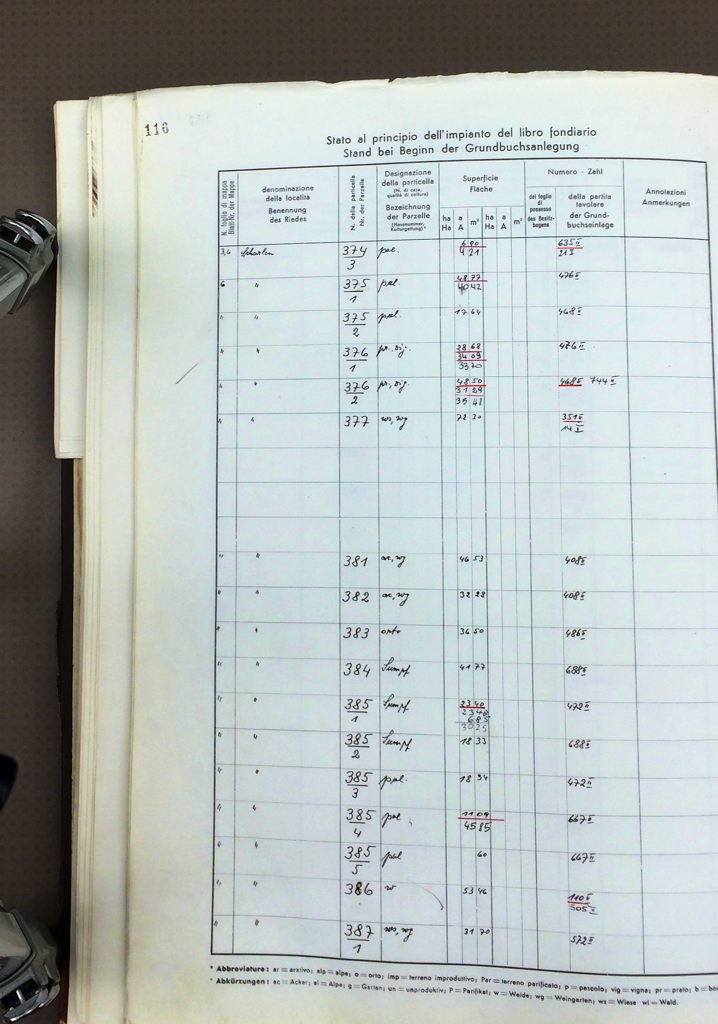 116
Stato al principio dell'impianto del libro fondiario
Stand bei Beginn der Grundbuchsanlegung
N. foglio di mappa
Blatt-Nr. der Mappe
denominazione
della località
Benennung
des Riedes
N. della particella
Nr. der Parzelle
Designazione
della particella
(N. di casa,
qualità di coltura)
Bezeichnung
der Parzelle
(Hausnummer,
Kulturgattung)*
Superficie
Fläche
ha a m² ha a m²
Ha A Ha A
Numero - Zahl
del foglio
di
possesso
des Besitz-
bogens
della partita
tavolare
der Grund-
buchseinlage
Annotazioni
Anmerkungen
3,6 374/3 6 90 635 II
4 21 21 I
6 " 375/1 48 77 476 II
40 42
" " 375/2 17 64 468 II
" " 376/1 28 68 476 II
34 09
33 70
" " 376/2 48 50 468 II 744 II
31 29
35 41
" " 377 ws, wg 72 30 351 II
14 I
" " 381 ac, wg 46 53 408 II
" " 382 ac, wg 32 28 408 II
" " 383 orto 36 50 486 II
" " 384 Sumpf 41 77 688 II
" " 385/1 Sumpf 23 40 472 II
23 40
6 85
30 25
" " 385/2 Sumpf 18 33 688 II
" " 385/3 18 34 472 II
" " 385/4 11 09 667 II
45 85
" " 385/5 60 667 II
" " 386 w 53 46 110 II
505 II
" " 387/1 ws, wg 31 70 572 II
* Abbreviature: ar = arativo; alp = alpe; o = orto; imp = terreno improduttivo; Par = terreno parificato; p = pascolo; vig = vigna; pr = prato; b = bo
* Abkürzungen: ac = Acker; al = Alpe; g = Garten; un = unproduktiv; P = Parifikat; w = Weide; wg = Weingarten; ws = Wiese wl = Wald.